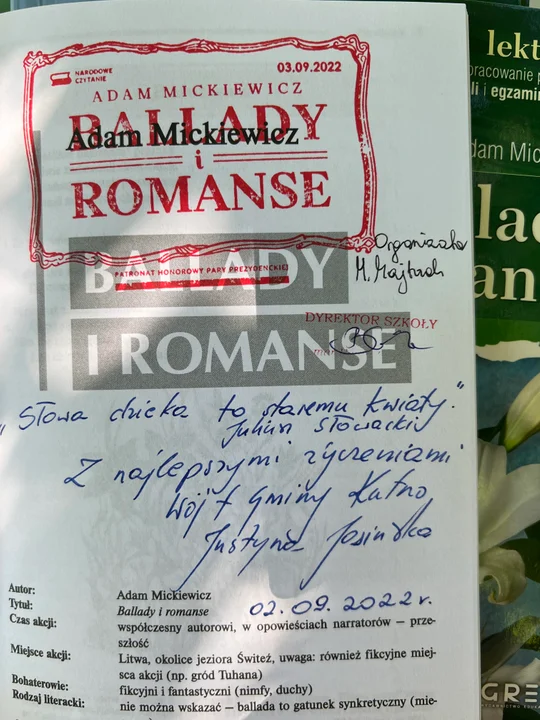 NARODOWE
CZYTANIE
03.09.2022
ADAM MICKIEWICZ
BALLADY
Adam Mickiewicz
i
ROMANSE
BALLADY
PATRONAT HONOROWY PARY PREZYDENCKIEJ
Organizator
M. Majtrach
DYREKTOR SZKOŁY
I ROMANSE
"Słowa dziecka to staremu kwiaty."
Juliusz Słowacki
Z najlepszymi życzeniami
Wójt Gminy Kutno
Justyna Jasińska
02.09.2022 r.
Autor: Adam Mickiewicz
Tytuł: Ballady i romanse
Czas akcji: współczesny autorowi, w opowieściach narratorów – prze-
szłość
Miejsce akcji: Litwa, okolice jeziora Świteź, uwaga: również fikcyjne miej-
sca akcji (np. gród Tuhana)
Bohaterowie: fikcyjni i fantastyczni (nimfy, duchy)
Rodzaj literacki: nie można wskazać – ballada to gatunek synkretyczny (mie-
lekt
opracowanie
li i egzamin
dam Mic
lad
an
GRE